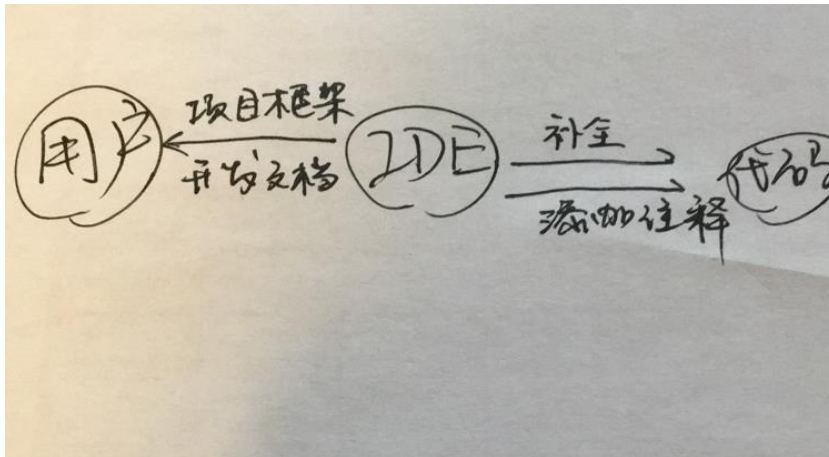 用户
项目框架
开发文档
IDE
补全
添加注释
代码